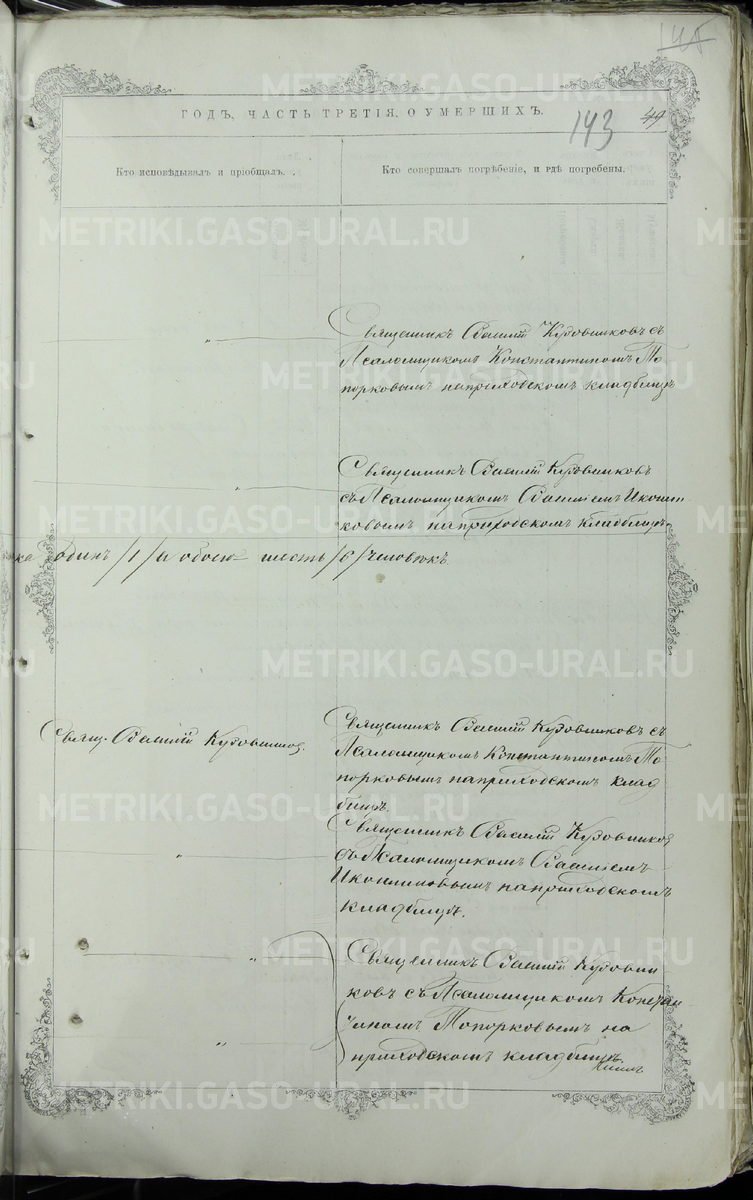 143
49
ГОДЪ, ЧАСТЬ ТРЕТІЯ, О УМЕРШИХЪ.
Кто исповѣдывалъ и пріобщалъ.
Кто совершалъ погребеніе, и гдѣ погребены.
METRIKI.GASO-URAL.RU
Священникъ Василій Кузовниковъ съ
Псаломщикомъ Константиномъ То
порковымъ на приходскомъ кладбищѣ
Священникъ Василій Кузовниковъ
съ Псаломщикомъ Василіемъ
ковымъ на приходскомъ кладбищѣ
одинъ /1/ а обоего шесть /6/ человѣкъ
Свящ. Василій Кузовниковъ.
Священникъ Василій Кузовниковъ съ
Псаломщикомъ Константиномъ То
порковымъ на приходскомъ клад
бищѣ.
Священникъ Василій Кузовниковъ
съ Псаломщикомъ Василіемъ
на приходскомъ
кладбищѣ.
Священникъ Василій Кузовни
ковъ съ Псаломщикомъ Констан
тиномъ Топорковымъ на
приходскомъ кладбищѣ.